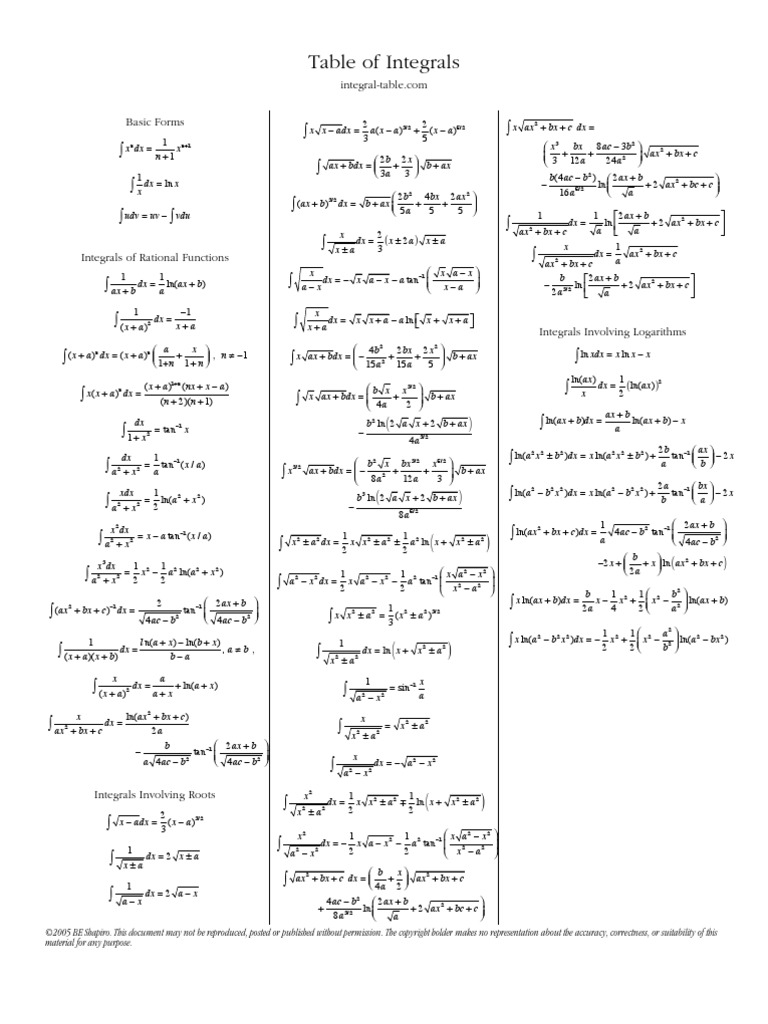 Table of Integrals
integral-table.com
Basic Forms
∫xⁿdx = 1/(n+1) xⁿ⁺¹
∫1/x dx = ln x
∫udv = uv − ∫vdu
Integrals of Rational Functions
∫1/(ax+b) dx = 1/a ln(ax+b)
∫1/(x+a)² dx = −1/(x+a)
∫(x+a)ⁿdx = (x+a)ⁿ(a/(1+n) + x/(1+n)), n ≠ −1
∫x(x+a)ⁿdx = (x+a)¹⁺ⁿ(nx+x−a)/((n+2)(n+1))
∫dx/(1+x²) = tan⁻¹ x
∫dx/(a²+x²) = 1/a tan⁻¹(x/a)
∫xdx/(a²+x²) = 1/2 ln(a²+x²)
∫x²dx/(a²+x²) = x − a tan⁻¹(x/a)
∫x³dx/(a²+x²) = 1/2 x² − 1/2 a² ln(a²+x²)
∫(ax²+bx+c)⁻¹dx = 2/√(4ac−b²) tan⁻¹((2ax+b)/√(4ac−b²))
∫1/((x+a)(x+b)) dx = (ln(a+x)−ln(b+x))/(b−a), a ≠ b ,
∫x/(x+a)² dx = a/(a+x) + ln(a+x)
∫x/(ax²+bx+c) dx = ln(ax²+bx+c)/(2a)
− b/(a√(4ac−b²)) tan⁻¹((2ax+b)/√(4ac−b²))
Integrals Involving Roots
∫√(x−a)dx = 2/3 (x−a)^(3/2)
∫1/√(x±a) dx = 2√(x±a)
∫1/√(a−x) dx = 2√(a−x)
∫x√(x−a)dx = 2/3 a(x−a)^(3/2) + 2/5 (x−a)^(5/2)
∫√(ax+b)dx = (2b/(3a) + 2x/3)√(b+ax)
∫(ax+b)^(3/2)dx = √(b+ax)(2b²/(5a) + 4bx/5 + 2ax²/5)
∫x/√(x±a) dx = 2/3 (x±2a)√(x±a)
∫√(x/(a−x)) dx = −√x√(a−x) − a tan⁻¹(√x√(a−x)/(x−a))
∫√(x/(x+a)) dx = √x√(x+a) − a ln[√x+√(x+a)]
∫x√(ax+b)dx = (−4b²/(15a²) + 2bx/(15a) + 2x²/5)√(b+ax)
∫√x√(ax+b)dx = (b√x/(4a) + x^(3/2)/2)√(b+ax)
− b² ln(2√a√x+2√(b+ax))/(4a^(3/2))
∫x^(3/2)√(ax+b)dx = (−b²√x/(8a²) + bx^(3/2)/(12a) + x^(5/2)/3)√(b+ax)
− b³ ln(2√a√x+2√(b+ax))/(8a^(5/2))
∫√(x²±a²)dx = 1/2 x√(x²±a²) ± 1/2 a² ln(x+√(x²±a²))
∫√(a²−x²)dx = 1/2 x√(a²−x²) − 1/2 a² tan⁻¹(x√(a²−x²)/(x²−a²))
∫x√(x²±a²) = 1/3 (x²±a²)^(3/2)
∫1/√(x²±a²) dx = ln(x+√(x²±a²))
∫1/√(a²−x²) = sin⁻¹ x/a
∫x/√(x²±a²) = √(x²±a²)
∫x/√(a²−x²) dx = −√(a²−x²)
∫x²/√(x²±a²) dx = 1/2 x√(x²±a²) ∓ 1/2 ln(x+√(x²±a²))
∫x²/√(a²−x²) dx = −1/2 x√(a−x²) − 1/2 a² tan⁻¹(x√(a²−x²)/(x²−a²))
∫√(ax²+bx+c) dx = (b/(4a) + x/2)√(ax²+bx+c)
+ (4ac−b²)/(8a^(3/2)) ln((2ax+b)/√a + 2√(ax²+bc+c))
∫x√(ax²+bx+c) dx =
(x³/3 + bx/(12a) + (8ac−3b²)/(24a²))√(ax²+bx+c)
− b(4ac−b²)/(16a^(5/2)) ln((2ax+b)/√a + 2√(ax²+bc+c))
∫1/√(ax²+bx+c) dx = 1/√a ln[(2ax+b)/√a + 2√(ax²+bx+c)]
∫x/√(ax²+bx+c) dx = 1/a √(ax²+bx+c)
− b/(2a^(3/2)) ln[(2ax+b)/√a + 2√(ax²+bx+c)]
Integrals Involving Logarithms
∫ln xdx = x ln x − x
∫ln(ax)/x dx = 1/2 (ln(ax))²
∫ln(ax+b)dx = (ax+b)/a ln(ax+b) − x
∫ln(a²x²±b²)dx = x ln(a²x²±b²) + 2b/a tan⁻¹(ax/b) − 2x
∫ln(a²−b²x²)dx = x ln(a²−b²x²) + 2a/b tan⁻¹(bx/a) − 2x
∫ln(ax²+bx+c)dx = 1/a √(4ac−b²) tan⁻¹((2ax+b)/√(4ac−b²))
−2x + (b/(2a) + x) ln(ax²+bx+c)
∫x ln(ax+b)dx = b/(2a) x − 1/4 x² + 1/2 (x² − b²/a²) ln(ax+b)
∫x ln(a²−b²x²)dx = −1/2 x² + 1/2 (x² − a²/b²) ln(a²−bx²)
©2005 BE Shapiro. This document may not be reproduced, posted or published without permission. The copyright holder makes no representation about the accuracy, correctness, or suitability of this
material for any purpose.